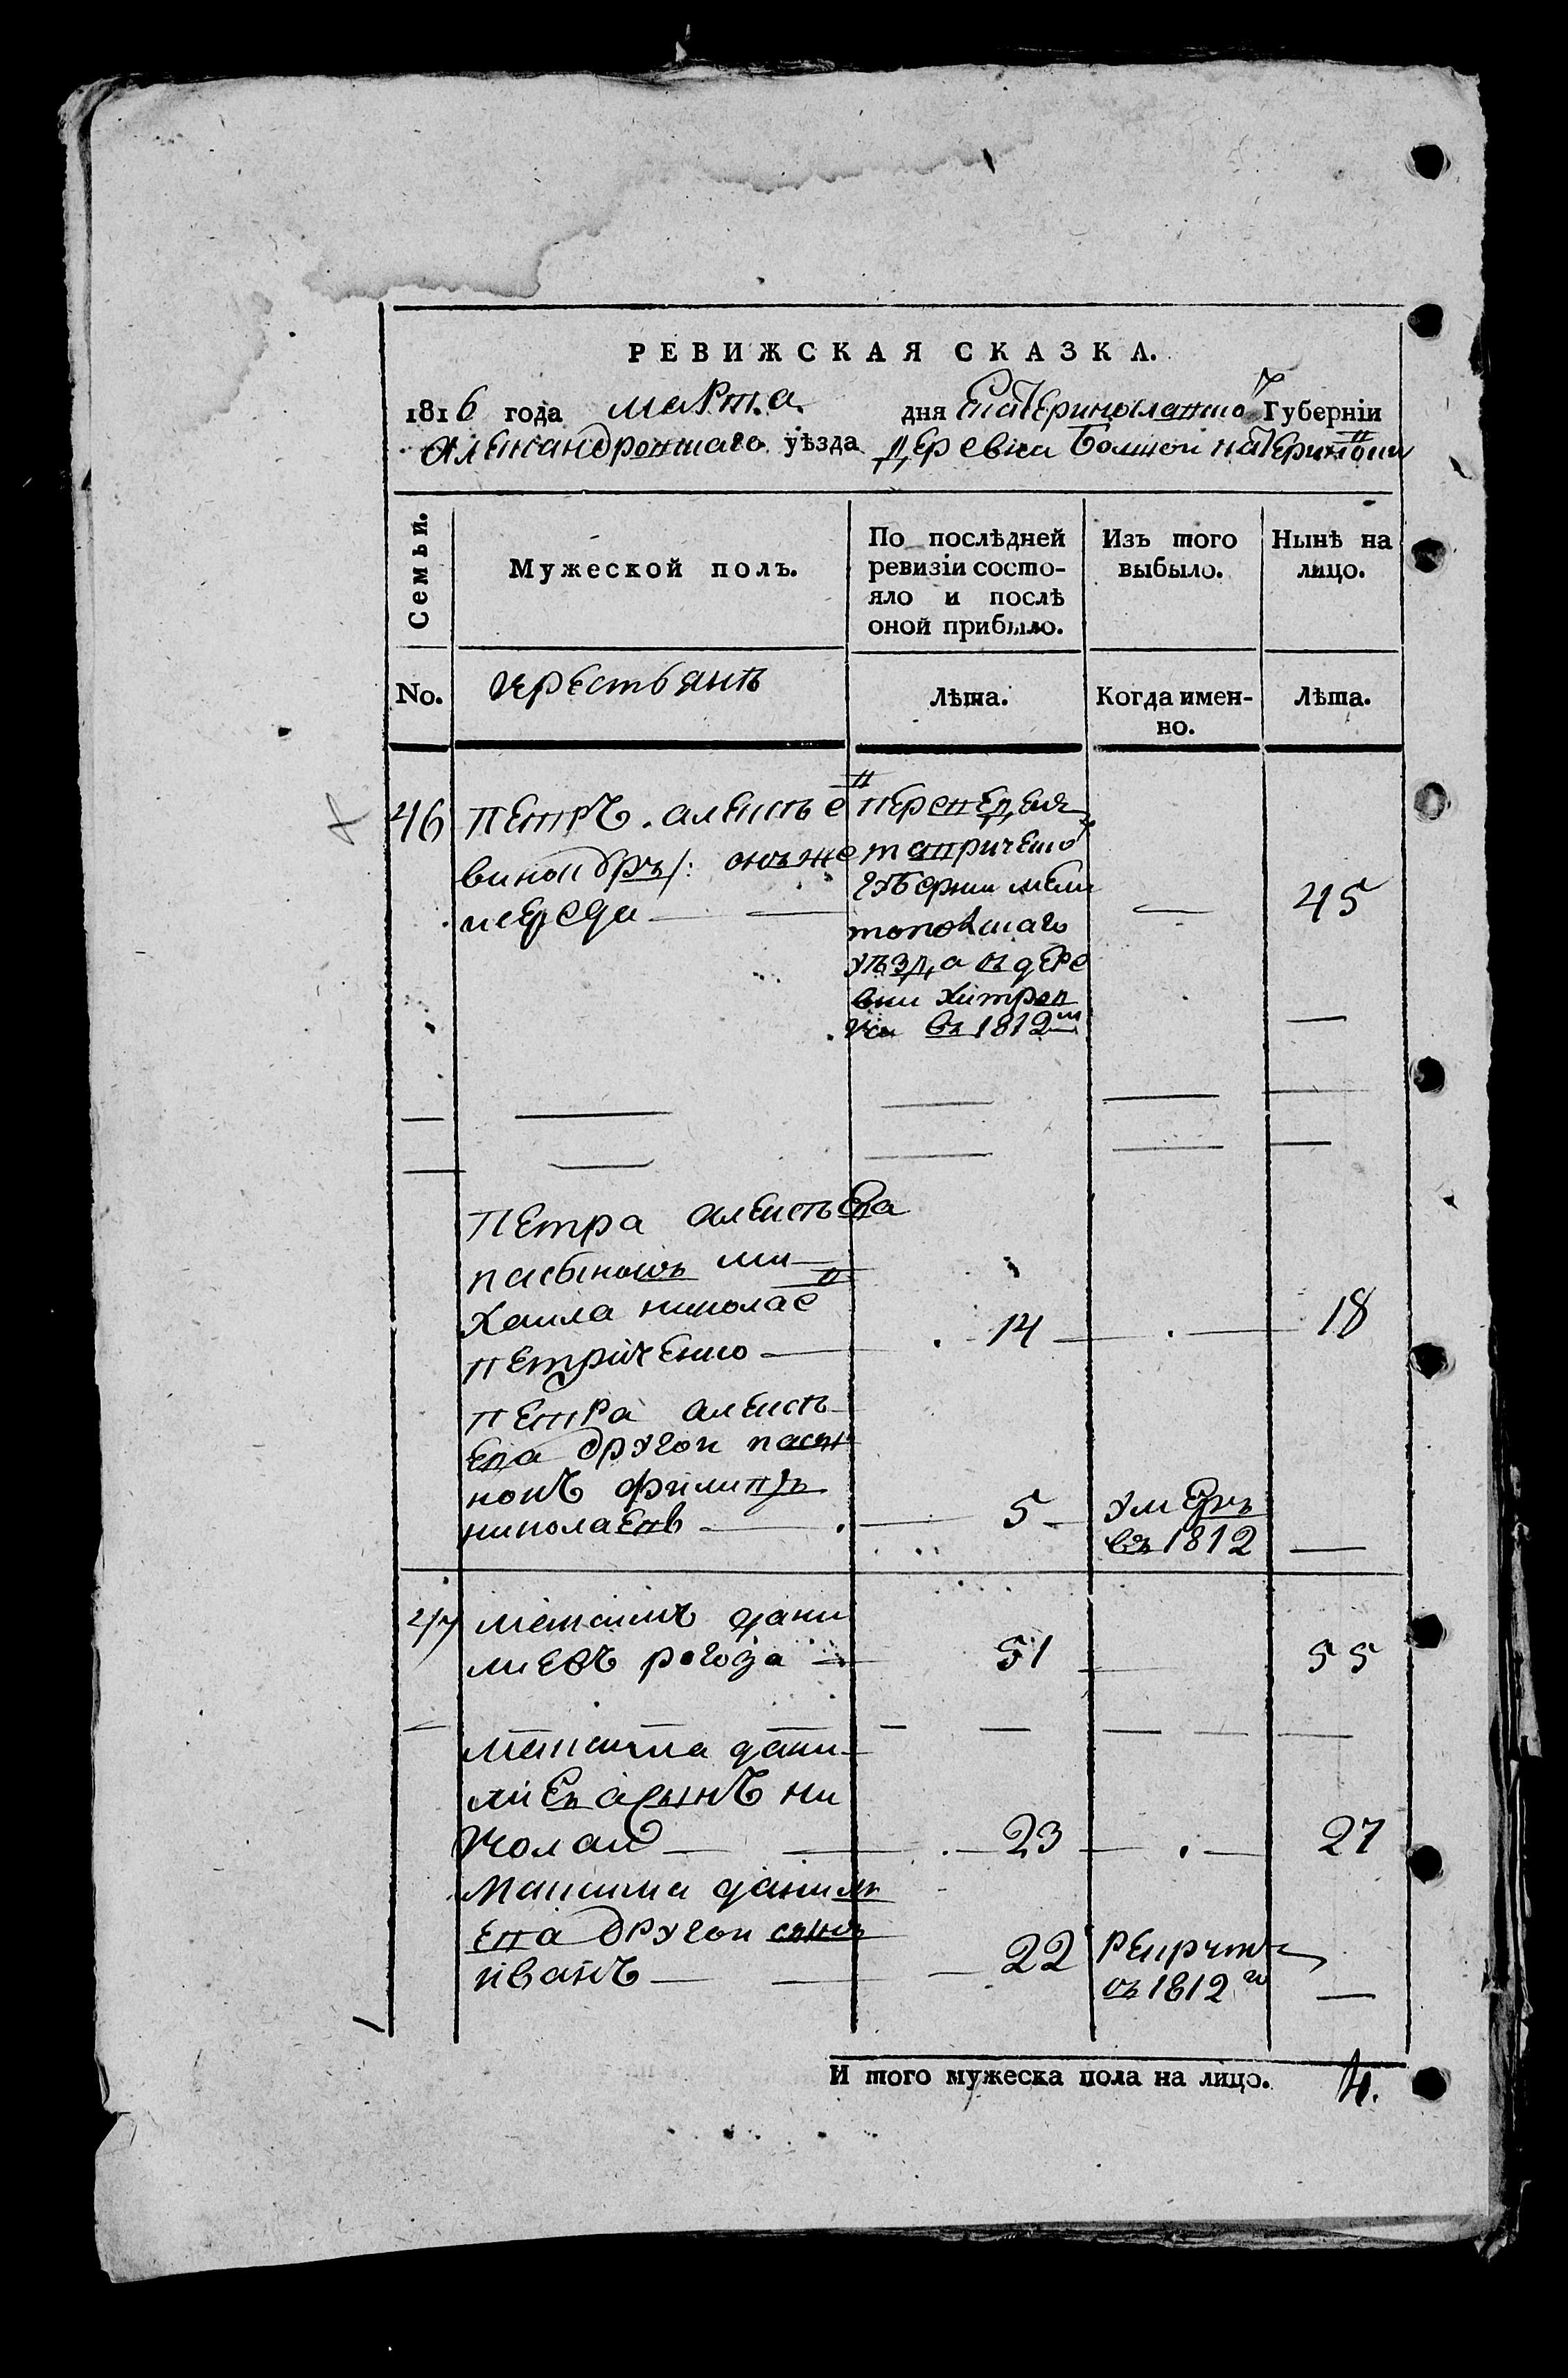 РЕВИЖСКАЯ СКАЗКА.
1816 года марта дня Екатеринославско Губерніи
Александровскаго уѣзда деревни Болшой Катериновки
Семьи.
Мужеской полъ.
По послѣдней ревизіи состо-
яло и послѣ
оной прибыло.
Изъ того
выбыло.
Нынѣ на
лицо.
No.
крестьянѣ
Лѣта.
Когда имен-
но.
Лѣта.
46 Петръ Алексѣев
онъ же
переведен
таврическо
губернии мели
топовскаго
уѣзда въ дере
вни
въ 1812м
45
Петра Алексѣева
пасынокъ ми
хаила николаев
петриченко 14 18
Петра Алексѣ
ева другои пасын
нокъ филипъ
николаевъ 5 умеръ
въ 1812
47 Максимъ дани
лиевъ рогоза 51 55
Максима дани
лиева сынъ ни
колаи 23 27
Максима данили
ева другои сынъ
иванъ 22 рекрутъ
въ 1812го
И того мужеска пола на лицо. 4.